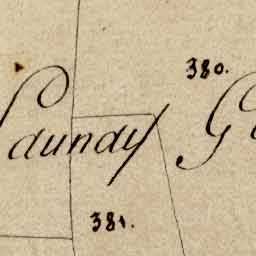 380.
Launay G
381.